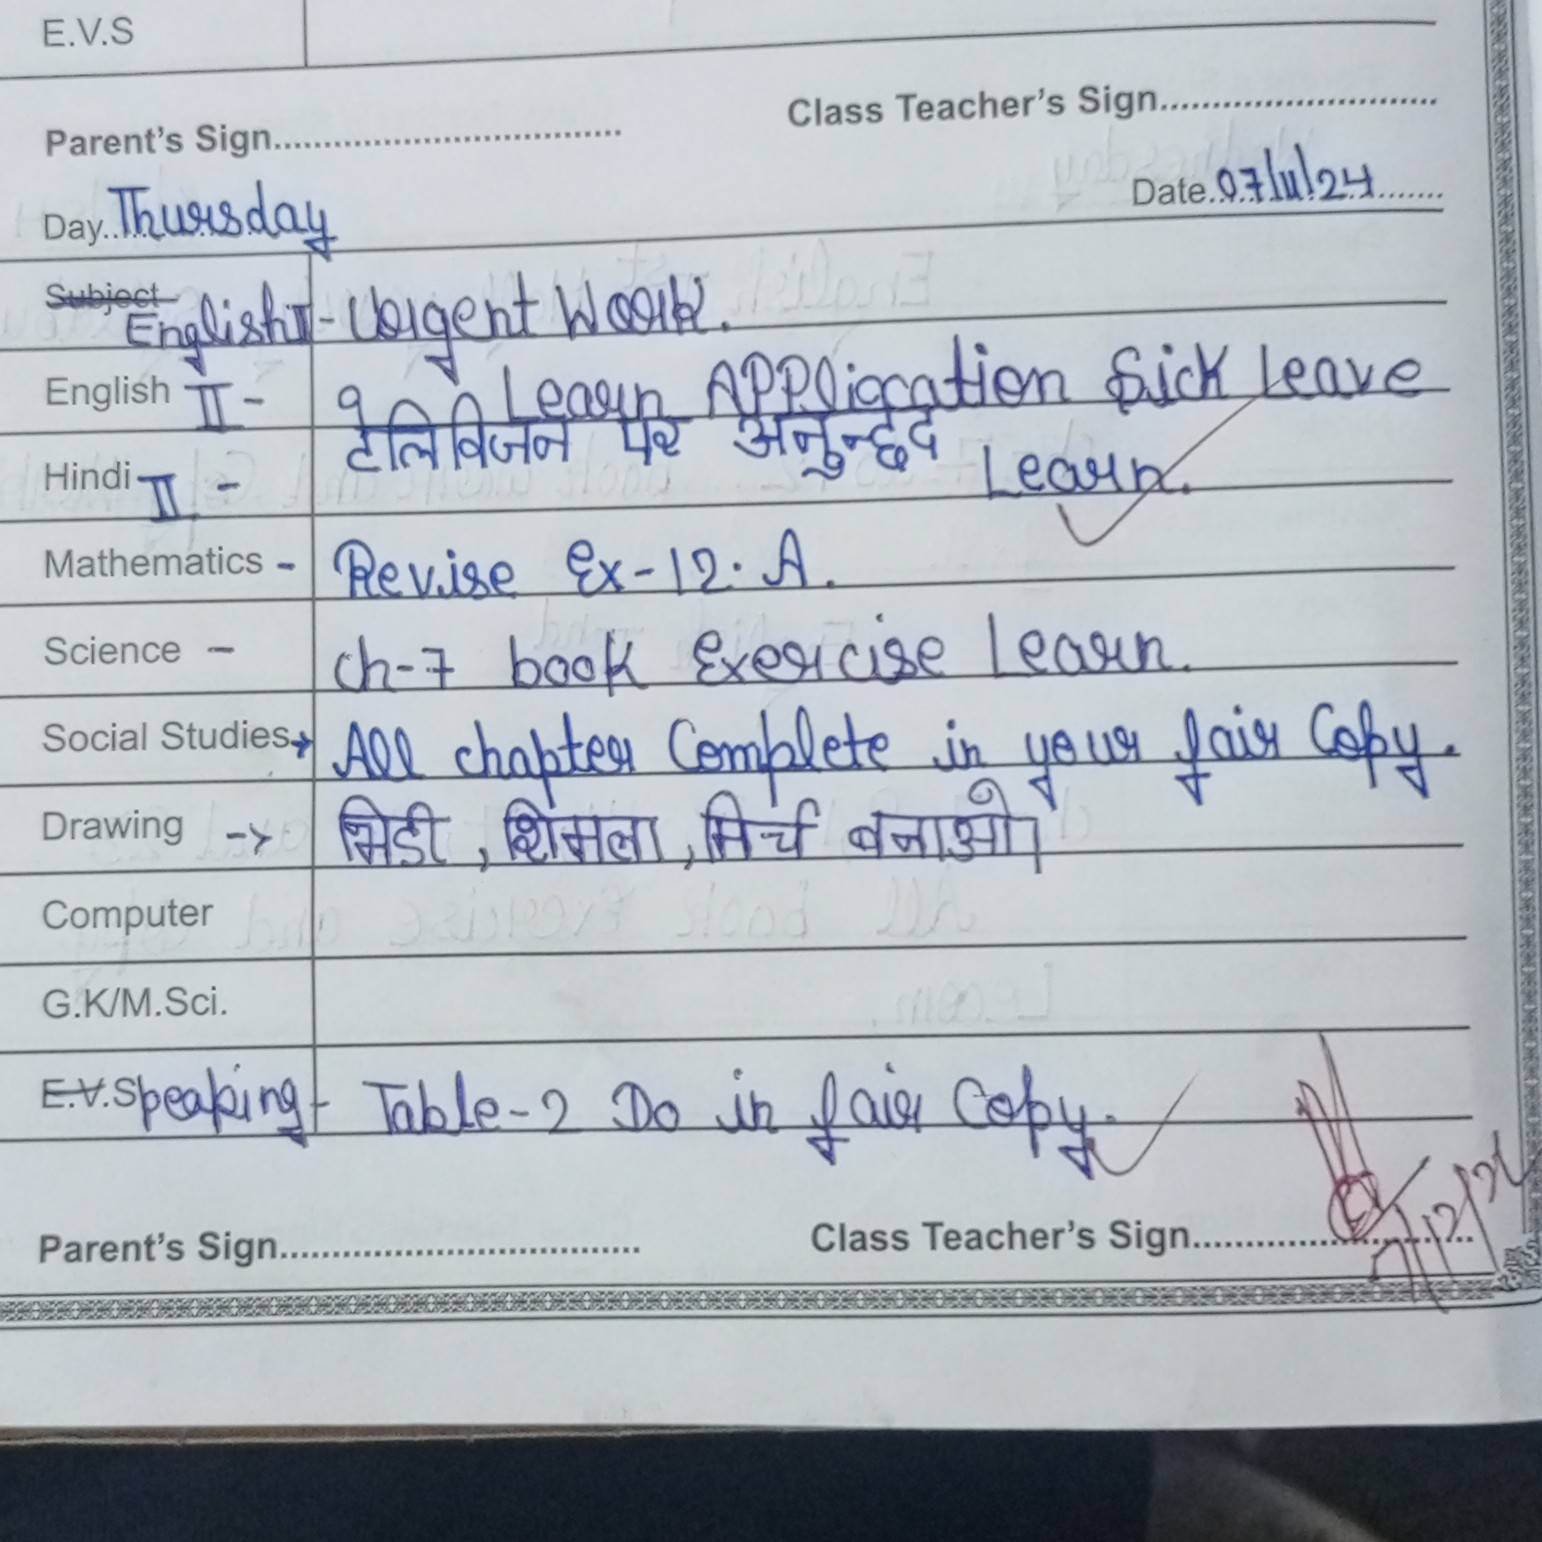 E.V.S
Parent's Sign................................... Class Teacher's Sign............................
Day..Thursday Date..07/11/24.......
Subject English I - Urgent Work.
English II - Learn APPliocation Sick Leave
Hindi II - टेलिविजन पर अनुन्छद Learn.
Mathematics - Revise Ex-12.A.
Science - Ch-7 book Exercise Learn.
Social Studies→ All chapter Complete in your fair Copy.
Drawing -> भिडी, शिमला, मिर्च बनाओ।
Computer
G.K/M.Sci.
E.V.Speaking - Table-2 Do in fair Copy.
Parent's Sign.................................... Class Teacher's Sign............................